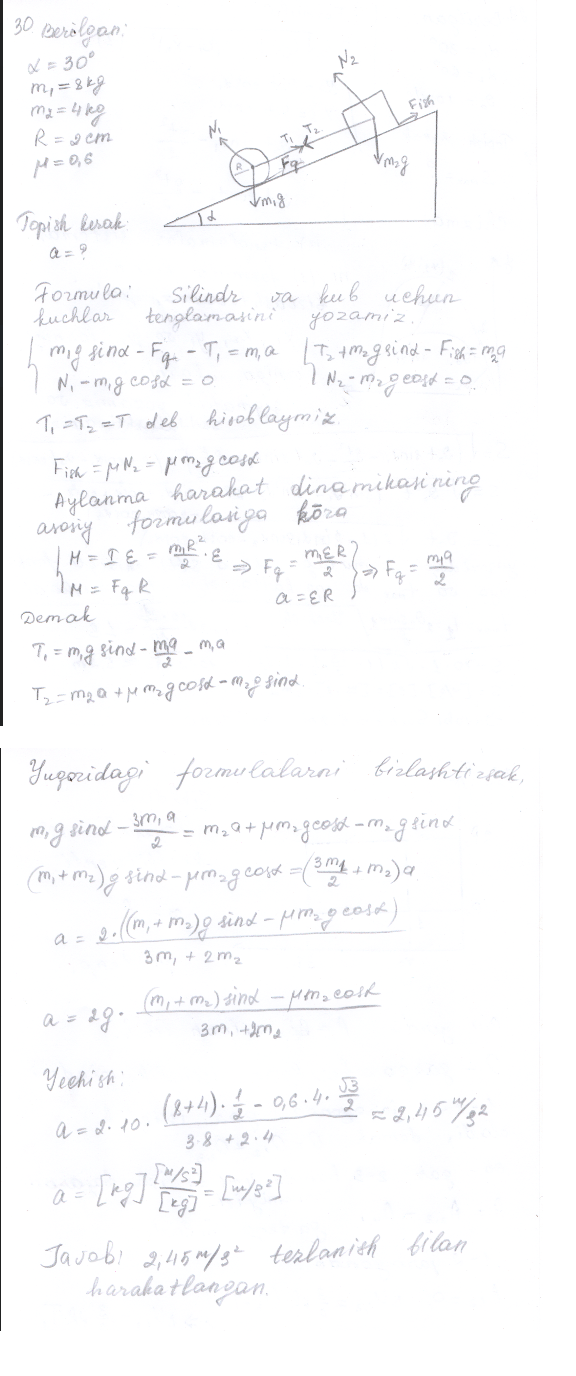 30. Berilgan:
α = 30°
m₁ = 8 kg
m₂ = 4 kg
R = 2 cm
μ = 0,6
Topish kerak
a = ?
N₂
Fish
N₁
T₁ T₂
R
Fq
m₂g
m₁g
α
Formula: Silindr va kub uchun
kuchlar tenglamasini yozamiz.
{ m₁g sinα - Fq - T₁ = m₁a { T₂ + m₂g sinα - Fish = m₂a
N₁ - m₁g cosα = 0 N₂ - m₂g cosα = 0
T₁ = T₂ = T deb hisoblaymiz
Fish = μN₂ = μm₂g cosα
Aylanma harakat dinamikasining
asosiy formulasiga ko̅ra
{ M = Iε = m₁R²/2 · ε ⇒ Fq = m₁εR/2 } ⇒ Fq = m₁a/2
M = Fq R a = εR
Demak
T₁ = m₁g sinα - m₁a/2 - m₁a
T₂ = m₂a + μm₂g cosα - m₂g sinα.
Yuqoridagi formulalarni birlashtirsak,
m₁g sinα - 3m₁a/2 = m₂a + μm₂g cosα - m₂g sinα
(m₁ + m₂)g sinα - μm₂g cosα = (3m₁/2 + m₂)a
a = 2·((m₁ + m₂)g sinα - μm₂g cosα)/3m₁ + 2m₂
a = 2g · (m₁ + m₂) sinα - μm₂ cosα/3m₁ + 2m₂
Yechish:
a = 2 · 10 · (8+4) · 1/2 - 0,6 · 4 · √3/2/3·8 + 2·4 ≈ 2,45 m/s²
a = [kg] [m/s²]/[kg] = [m/s²]
Javob: 2,45 m/s² tezlanish bilan
harakatlangan.